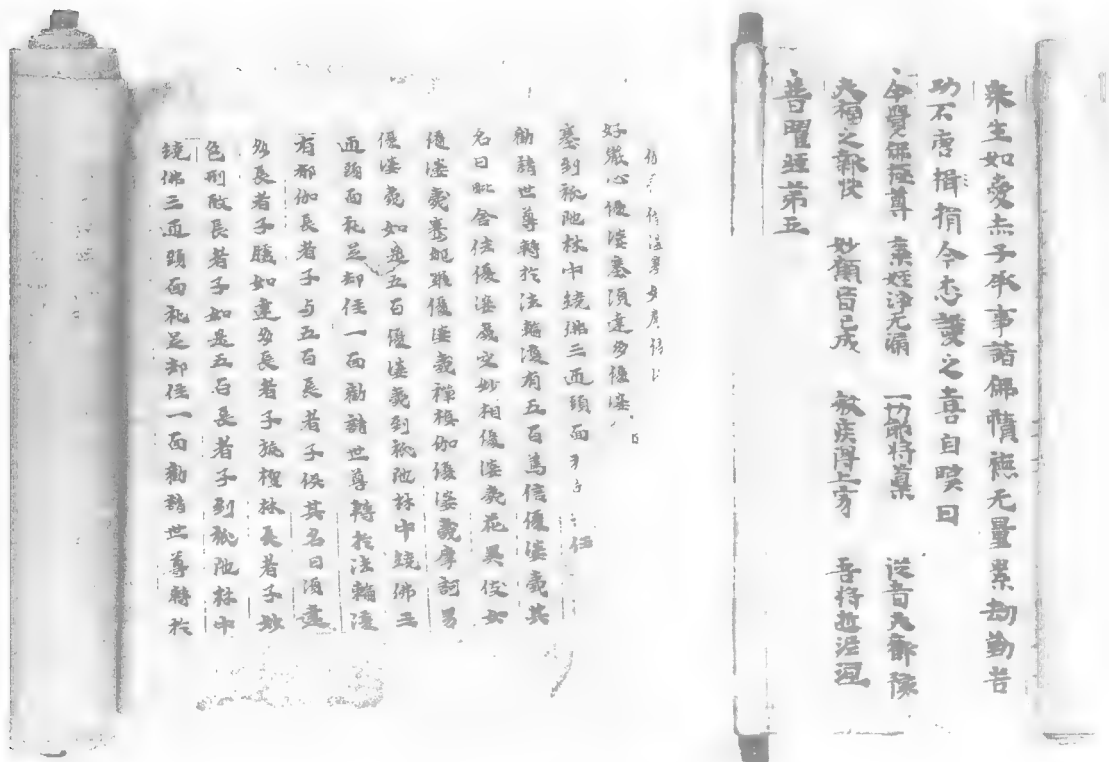 衆生如愛赤子承事諸佛積德无量累劫勤苦
功不唐捐捐今悉護之喜自嘆曰
今覺佛極尊 棄婬淨无漏 一切能將導 從者大歡豫
大福之報快 妙願皆已成 敏疾得上寂 吾將逝泥洹
普曜經第五
好嚴心優婆塞須達多優婆
塞到祇陁林中繞佛三迊頭面
勸請世尊轉於法輪復有五百篤信優婆夷其
名曰毗舍佉優婆夷定妙相優婆夷花異伎如
優婆夷 優婆夷禪積伽優婆夷摩訶男
優婆夷如是五百優婆夷到祇陁林中繞佛三
迊頭面礼足却住一面勸請世尊轉於法輪復
有郍伽長者子与五百長者子俱其名曰須達
多長者子騰如達多長者子旃檀林長者子妙
色形 長者子如是五百長者子到祇陁林中
繞佛三迊頭面礼足却住一面勸請世尊轉於